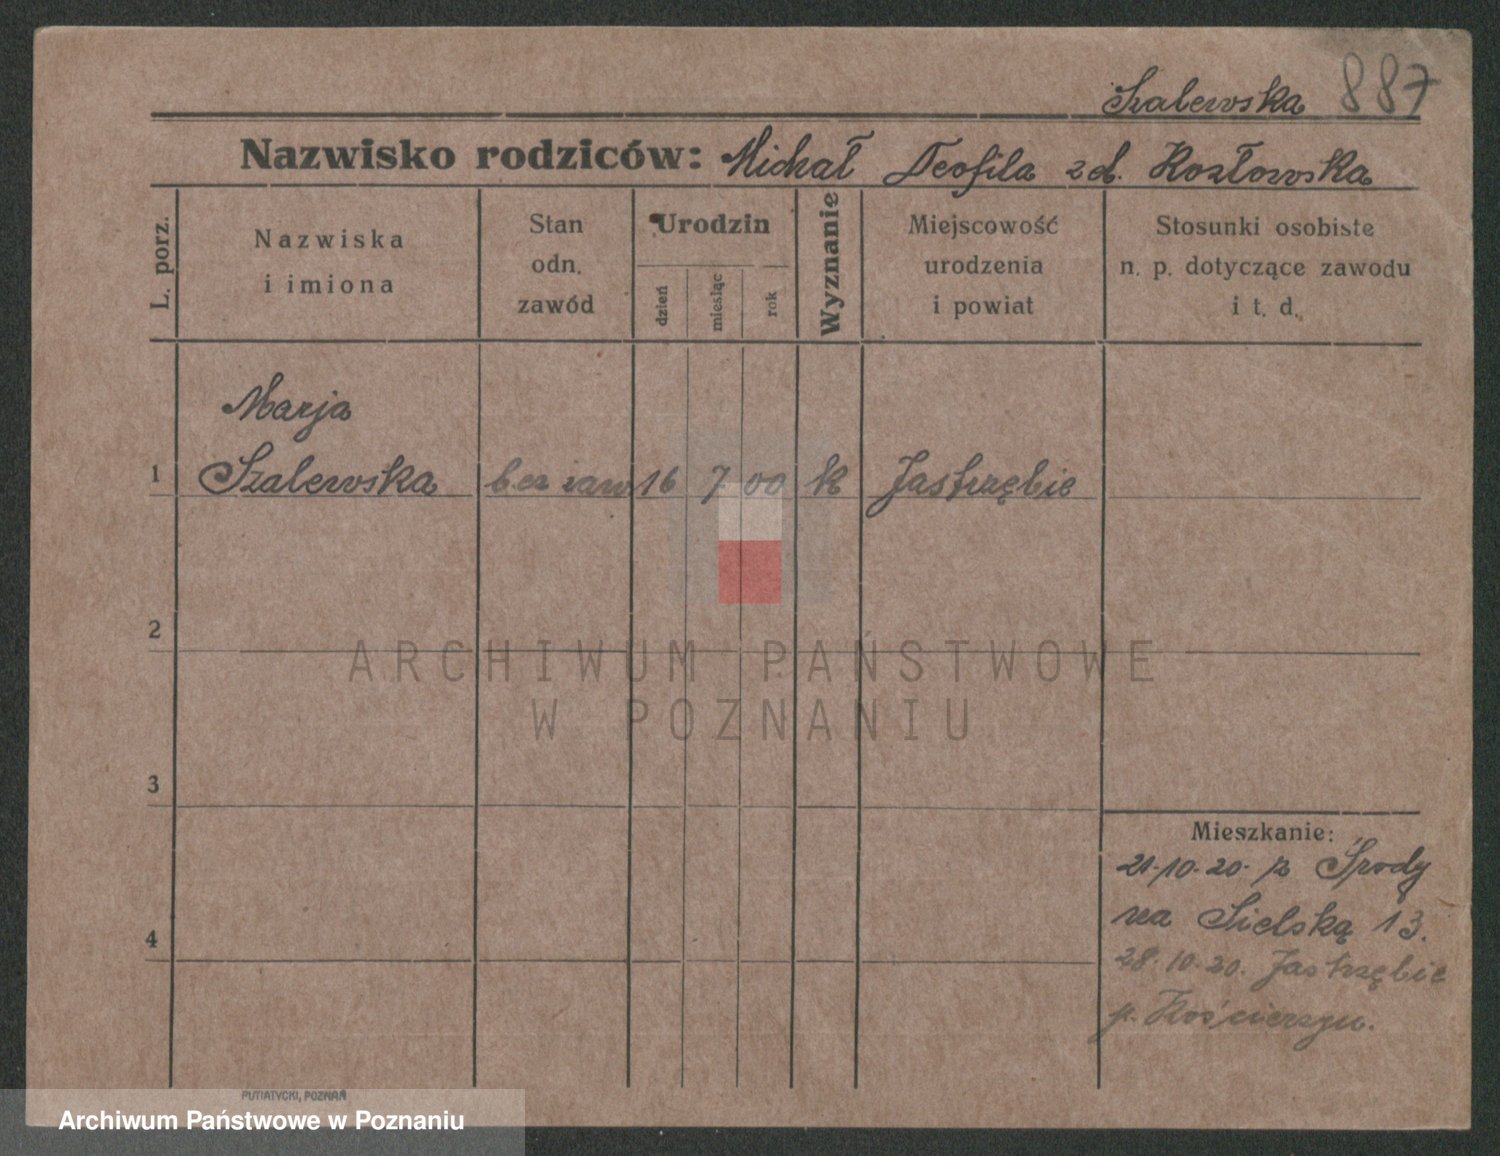 Szalewska 887
Nazwisko rodziców: Michał Teofila zd. Kozłowska
L. porz.
Nazwiska
i imiona
Stan
odn.
zawód
Urodzin
dzień
miesiąc
rok
Wyznanie
Miejscowość
urodzenia
i powiat
Stosunki osobiste
n. p. dotyczące zawodu
i t. d.
Marja
1 Szalewska bez zaw 16 7 00 k Jastrzębie
2
ARCHIWUM PAŃSTWOWE
W POZNANIU
3
Mieszkanie:
21.10.20. z Środy
na Sielską 13.
4
28.10.20. Jastrzębie
p. Kościerzyn.
PUTIATYCKI, POZNAŃ
Archiwum Państwowe w Poznaniu